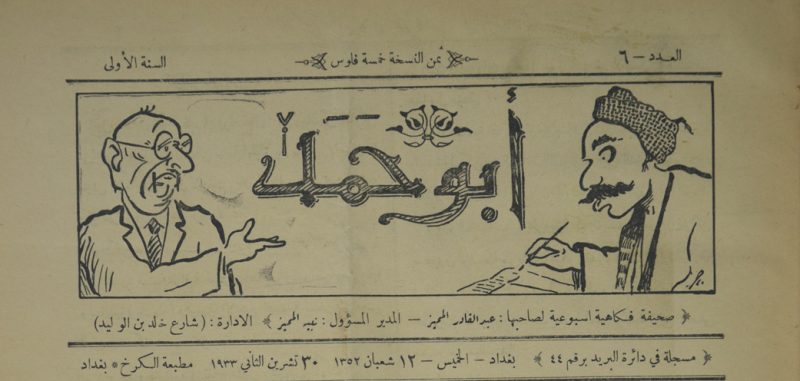 العـدد — ٦
ثمن النسخة خمسة فلوس
السنة الأولى
أبو حمد
صحيفة فكاهية اسبوعية لصاحبها : عبد القادر المميز — المدير المسؤول : نجيه المميز
الادارة : ( شارع خالد بن الوليد )
مسجلة في دائرة البريد برقم ٤٤
بغداد — الخميس — ١٢ شعبان ١٣٥٢ ٣٠ تشرين الثاني ١٩٣٣ مطبعة الكرخ * بغداد